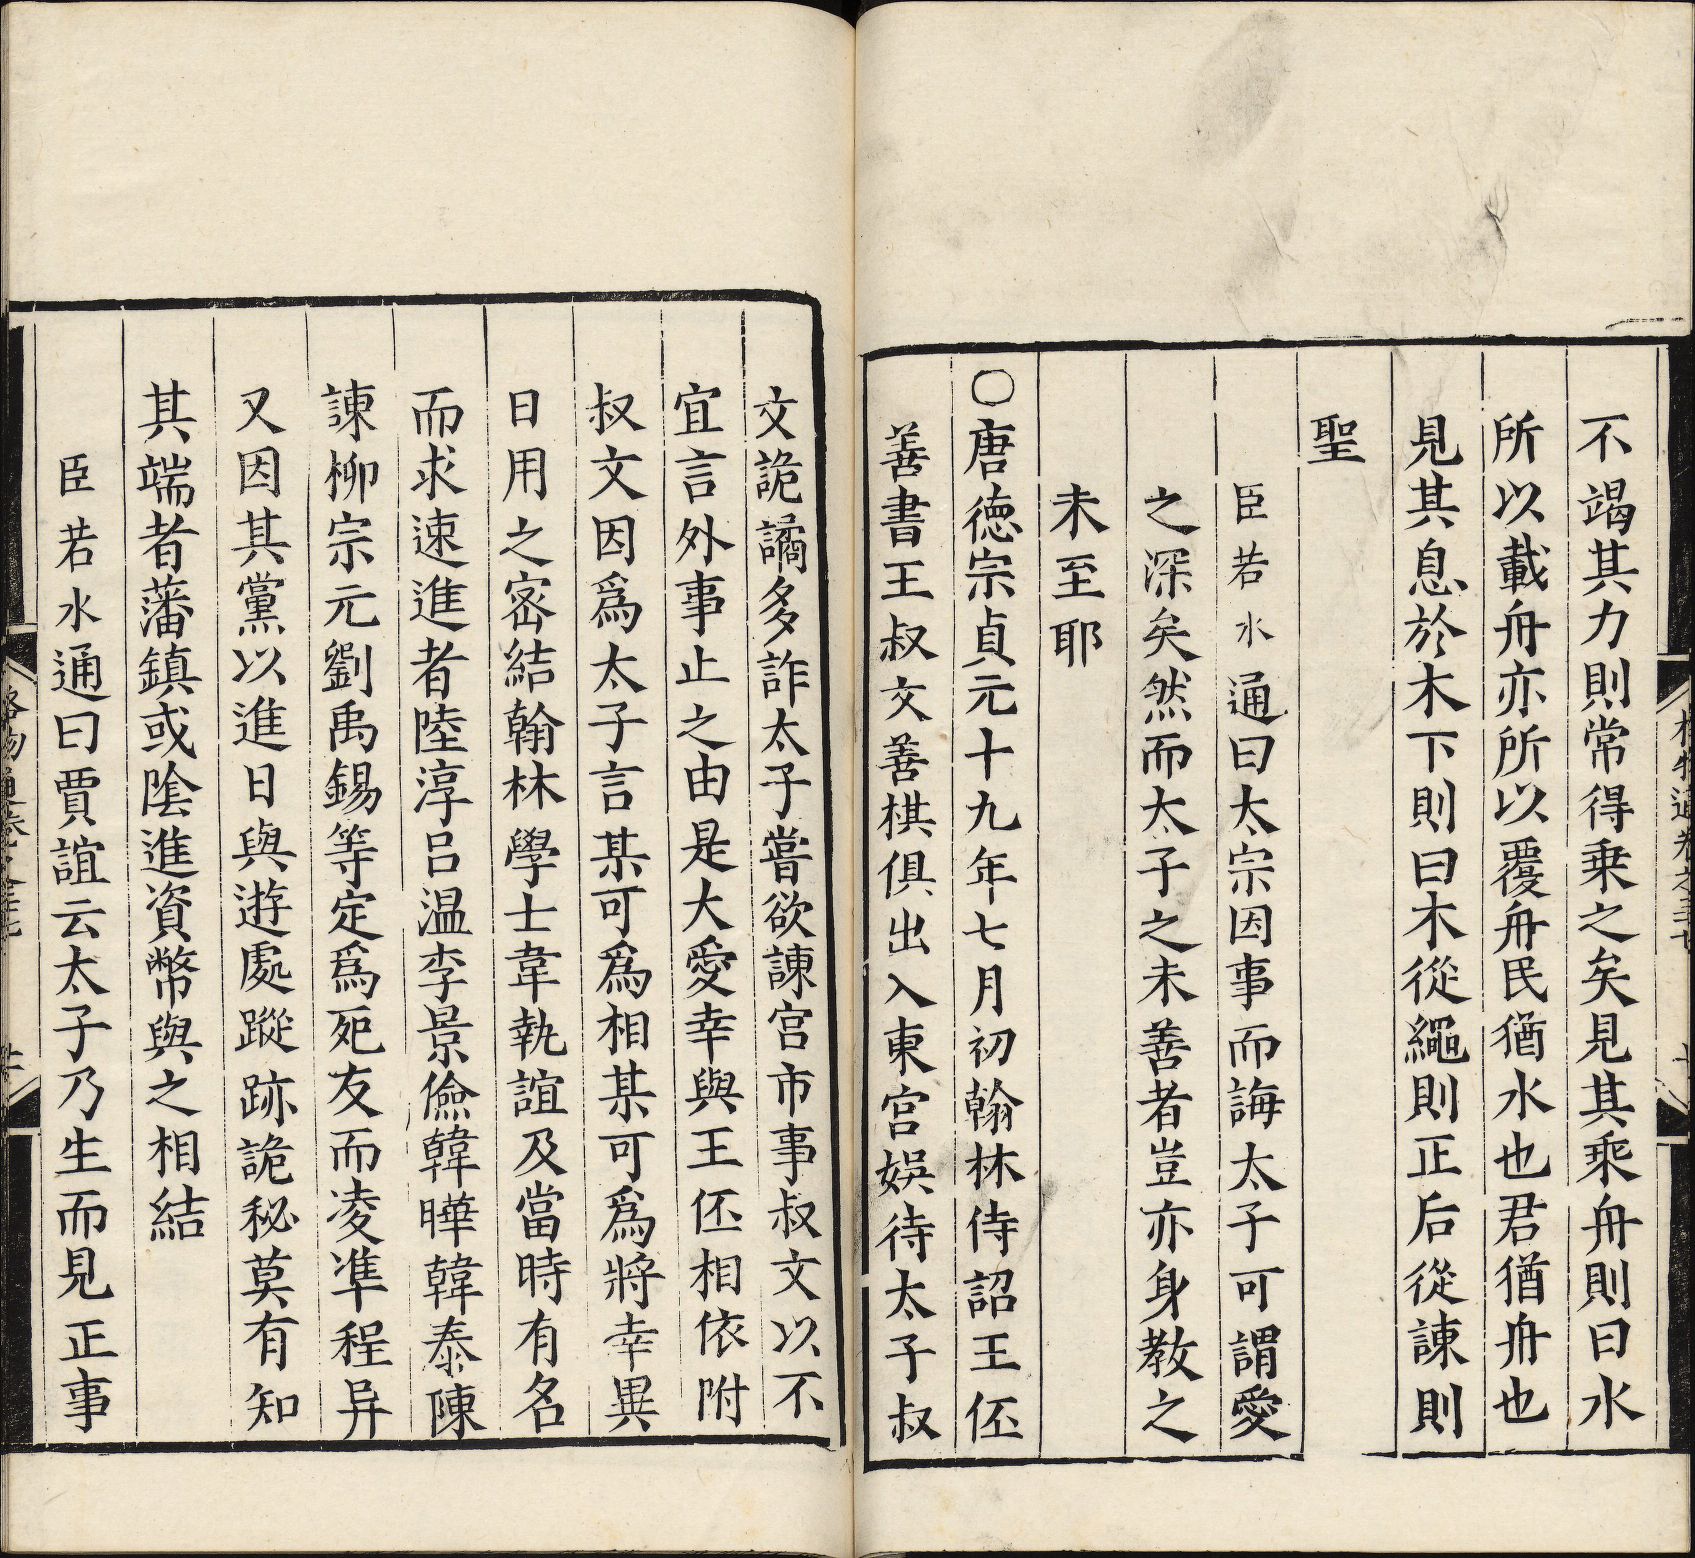 不竭其力則常得乗之矣見其乘舟則曰水
所以載舟亦所以覆舟民猶水也君猶舟也
見其息於木下則曰木從繩則正后從諫則
聖
臣若水通曰太宗因事而誨太子可謂愛
之深矣然而太子之未善者豈亦身教之
未至耶
○唐德宗貞元十九年七月初翰林侍詔王伾
善書王叔文善棋俱出入東宫娛待太子叔
文詭譎多詐太子嘗欲諫宫市事叔文以不
宜言外事止之由是大愛幸與王伾相依附
叔文因爲太子言某可爲相某可爲將幸異
日用之宻結翰林學士韋執誼及當時有名
而求速進者陸淳吕温李景儉韓曄韓泰陳
諫柳宗元劉禹錫等定爲死友而凌凖程异
又因其黨以進日與遊處蹤跡詭秘莫有知
其端者藩鎮或陰進資幣與之相結
臣若水通曰賈誼云太子乃生而見正事